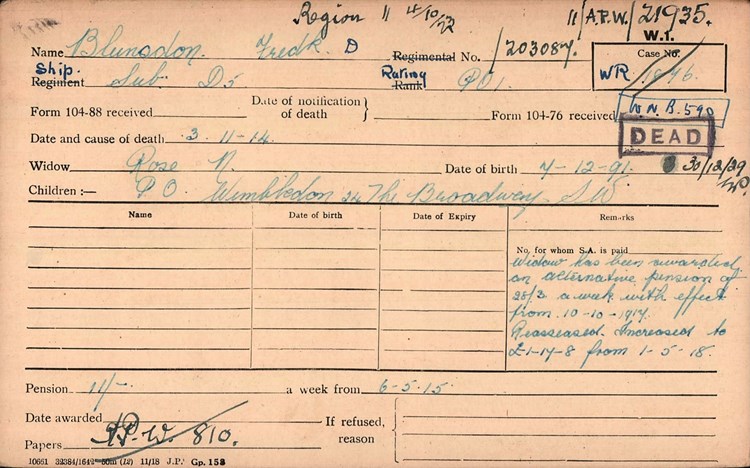 Region 11 4/10/22 11/A.P.W./21935.
W.1.
Name Blunsdon. Fredk. D Regimental No. /203087. Case No.
Ship. Regiment Sub. D5 Rating Rank PO1 WR 1846.
Form 104-88 received Date of notification of death } Form 104-76 received W.N.B. 590
Date and cause of death 3. 11-14. DEAD
Widow Rose N. Date of birth 7-12-91. 30/12/29
Children :— P O. Wimbledon 24 The Broadway. S W
Name Date of birth Date of Expiry Remarks
No. for whom S.A. is paid
Widow has been awarded
an alternative pension of
28/3 a week with effect
from 10-10-1917.
Reassessed. Increased to
£1-17-8 from 1-5-18.
Pension 11/- a week from 6-5-15.
Date awarded If refused, reason
Papers A.P.W. 810.
10661 32384/1642 50m (12) 11/18 J.P. Gp. 153